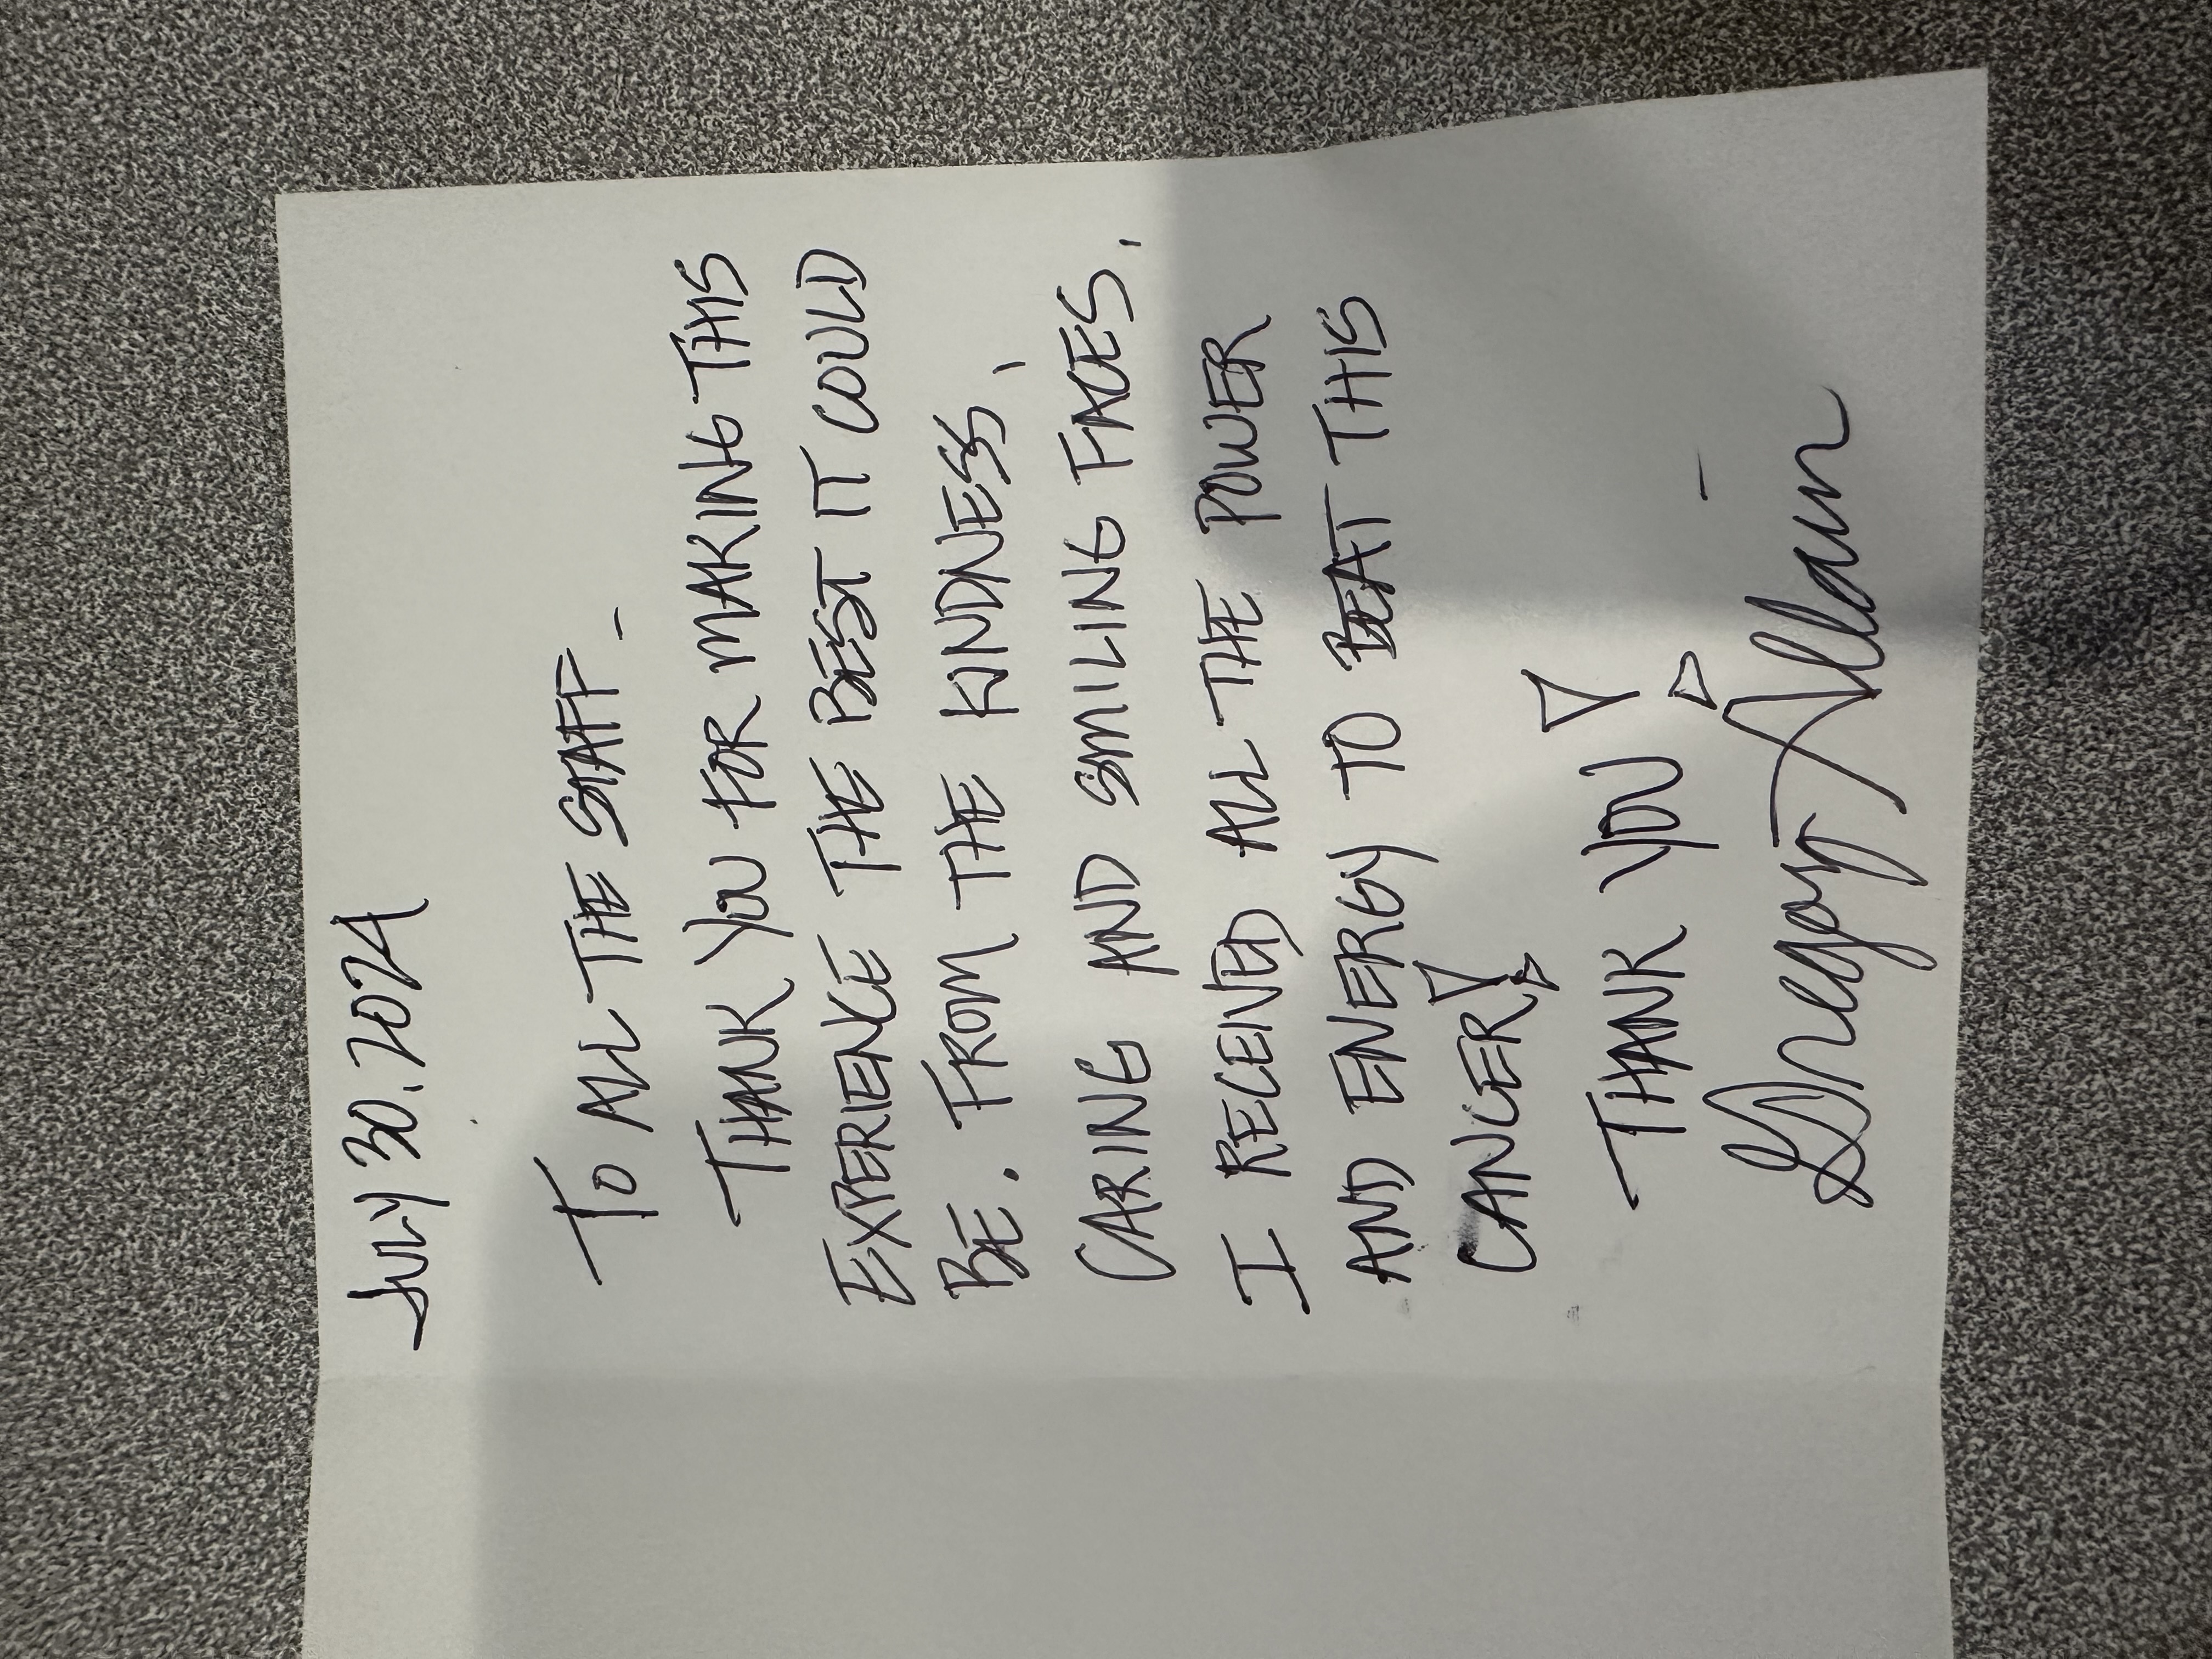 JULY 30. 2024
TO ALL THE STAFF -
THANK YOU FOR MAKING THIS
EXPERIENCE THE BEST IT COULD
BE. FROM THE KINDNESS,
CARING AND SMILING FACES.
I RECEIVED ALL THE POWER
AND ENERGY TO BEAT THIS
CANCER!
THANK YOU! -
Gregory Allain